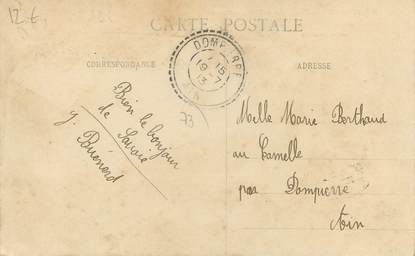 12 €
CARTE POSTALE
CORRESPONDANCE
ADRESSE
DOMPIERRE
15
19 - 7
13
AIN
73
Bien le bonjour
de Savoie
J.
Melle Marie Berthaud
au
par Dompierre
Ain